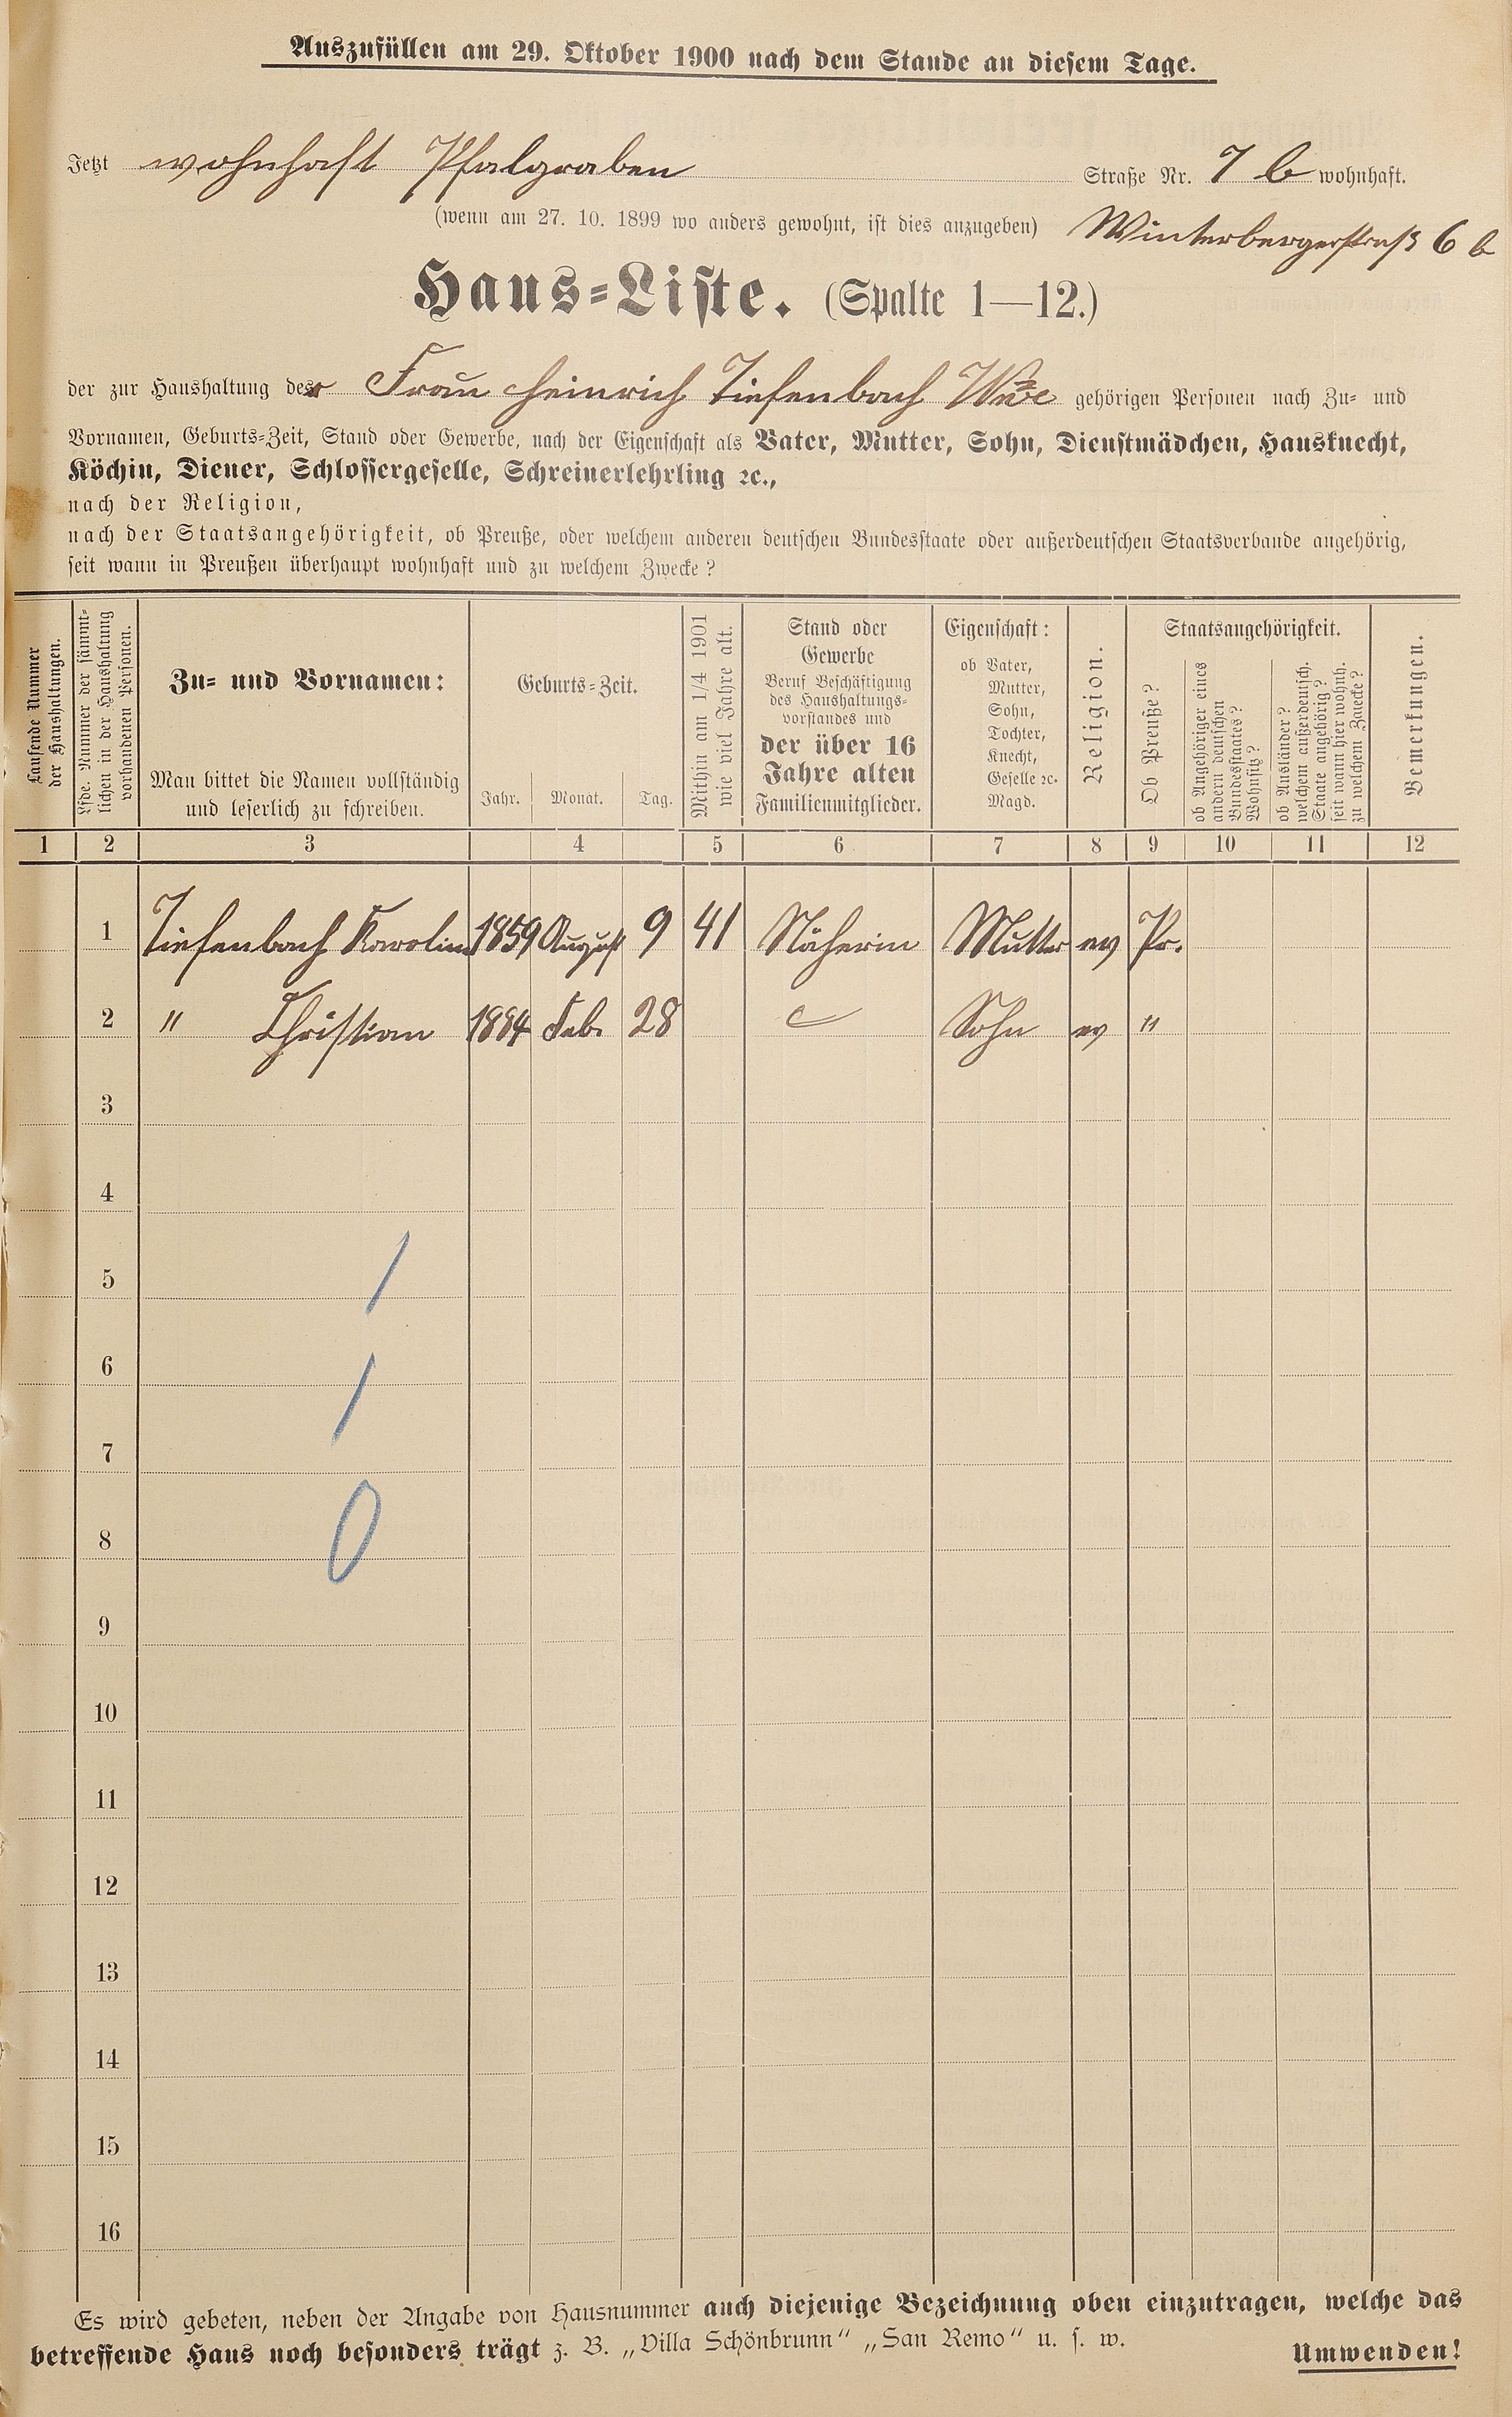 Auszufüllen am 29. Oktober 1900 nach dem Stande an diesem Tage.
Jetzt wohnhaft Pfalgraben Straße Nr. 7 b wohnhaft.
(wenn am 27. 10. 1899 wo anders gewohnt, ist dies anzugeben) Winterbergerstraß 6 b
Haus-Liste. (Spalte 1—12.)
der zur Haushaltung der Frau Heinrich Tiefenbach Wwe gehörigen Personen nach Zu- und
Vornamen, Geburts-Zeit, Stand oder Gewerbe, nach der Eigenschaft als Vater, Mutter, Sohn, Dienstmädchen, Hausknecht,
Köchin, Diener, Schlossergeselle, Schreinerlehrling ꝛc.,
nach der Religion,
nach der Staatsangehörigkeit, ob Preuße, oder welchem anderen deutschen Bundesstaate oder außerdeutschen Staatsverbande angehörig,
seit wann in Preußen überhaupt wohnhaft und zu welchem Zwecke?
Laufende Nummer
der Haushaltungen.
Lfde. Nummer der sämmt-
lichen in der Haushaltung
vorhandenen Personen.
Zu- und Vornamen:
Man bittet die Namen vollständig
und leserlich zu schreiben.
Geburts-Zeit.
Jahr. Monat. Tag.
Mithin am 1/4 1901
wie viel Jahre alt.
Stand oder
Gewerbe
Beruf Beschäftigung
des Haushaltungs-
vorstandes und
der über 16
Jahre alten
Familienmitglieder.
Eigenschaft:
ob Vater,
Mutter,
Sohn,
Tochter,
Knecht,
Geselle ꝛc.
Magd.
Religion.
Staatsangehörigkeit.
Ob Preuße?
ob Angehöriger eines
andern deutschen
Bundesstaates?
Wohnsitz?
ob Ausländer?
welchem außerdeutsch.
Staate angehörig?
seit wann hier wohnh.
zu welchem Zwecke?
Bemerkungen.
1 2 3 4 5 6 7 8 9 10 11 12
1 Tiefenbach Karolina 1859 August 9 41 Näherin Mutter ev Pr.
2 " Christian 1884 Feb. 28 Sohn ev "
3
4
5
6
7
8
9
10
11
12
13
14
15
16
Es wird gebeten, neben der Angabe von Hausnummer auch diejenige Bezeichnung oben einzutragen, welche das
betreffende Haus noch besonders trägt z. B. „Villa Schönbrunn“ „San Remo“ u. s. w.
Umwenden!